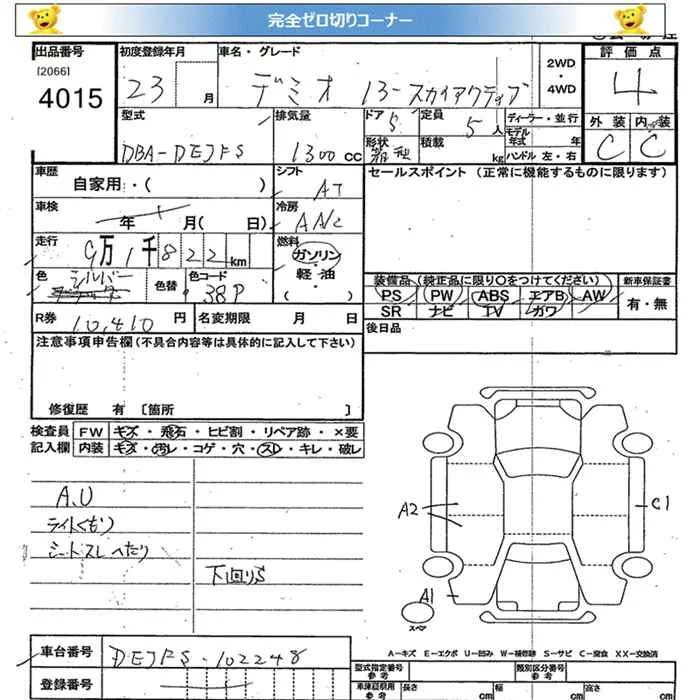 完全ゼロ切りコーナー
出品番号 初度登録年月 車名・グレード 2WD・4WD 評価点
[2066]
4015 23 月 デミオ 13-スカイアクティブ 4
型式 排気量 ドア 5 定員 5人 ディーラー・並行 外装 内装
DBA-DEJFS 1300cc 形状 積載 kg モデル年式 年 ハンドル 左・右 C C
車歴 自家用・( ) シフト AT セールスポイント (正常に機能するものに限ります)
車検 年 月( 日) 冷房 AAC
走行 9万1千822km 燃料 ガソリン・軽油 ( )
色 シルバー 色替 色コード 38P 装備品 (純正品に限り○をつけてください) 新車保証書
PS PW ABS エアB AW 有・無
SR ナビ TV カワ
R券 10,410円 名変期限 月 日 後日品
注意事項申告欄 (不具合内容等は具体的に記入して下さい)
修復歴 有 [箇所 ]
検査員 FW キズ・飛石・ヒビ割・リペア跡・×要
記入欄 内装 キズ・汚レ・コゲ・穴・スレ・キレ・破レ
A.U
ライトくもり
シートスレへたり
下回りS
A2
C1
A1
スペア
A-キズ E-エクボ U-凹み W-補修跡 S-サビ C-腐食 XX-交換済
車台番号 DEJFS-102248
登録番号
型式指定番号 参考 類別区分番号 参考
車検証原用 参考 長さ cm 幅 cm 高さ cm